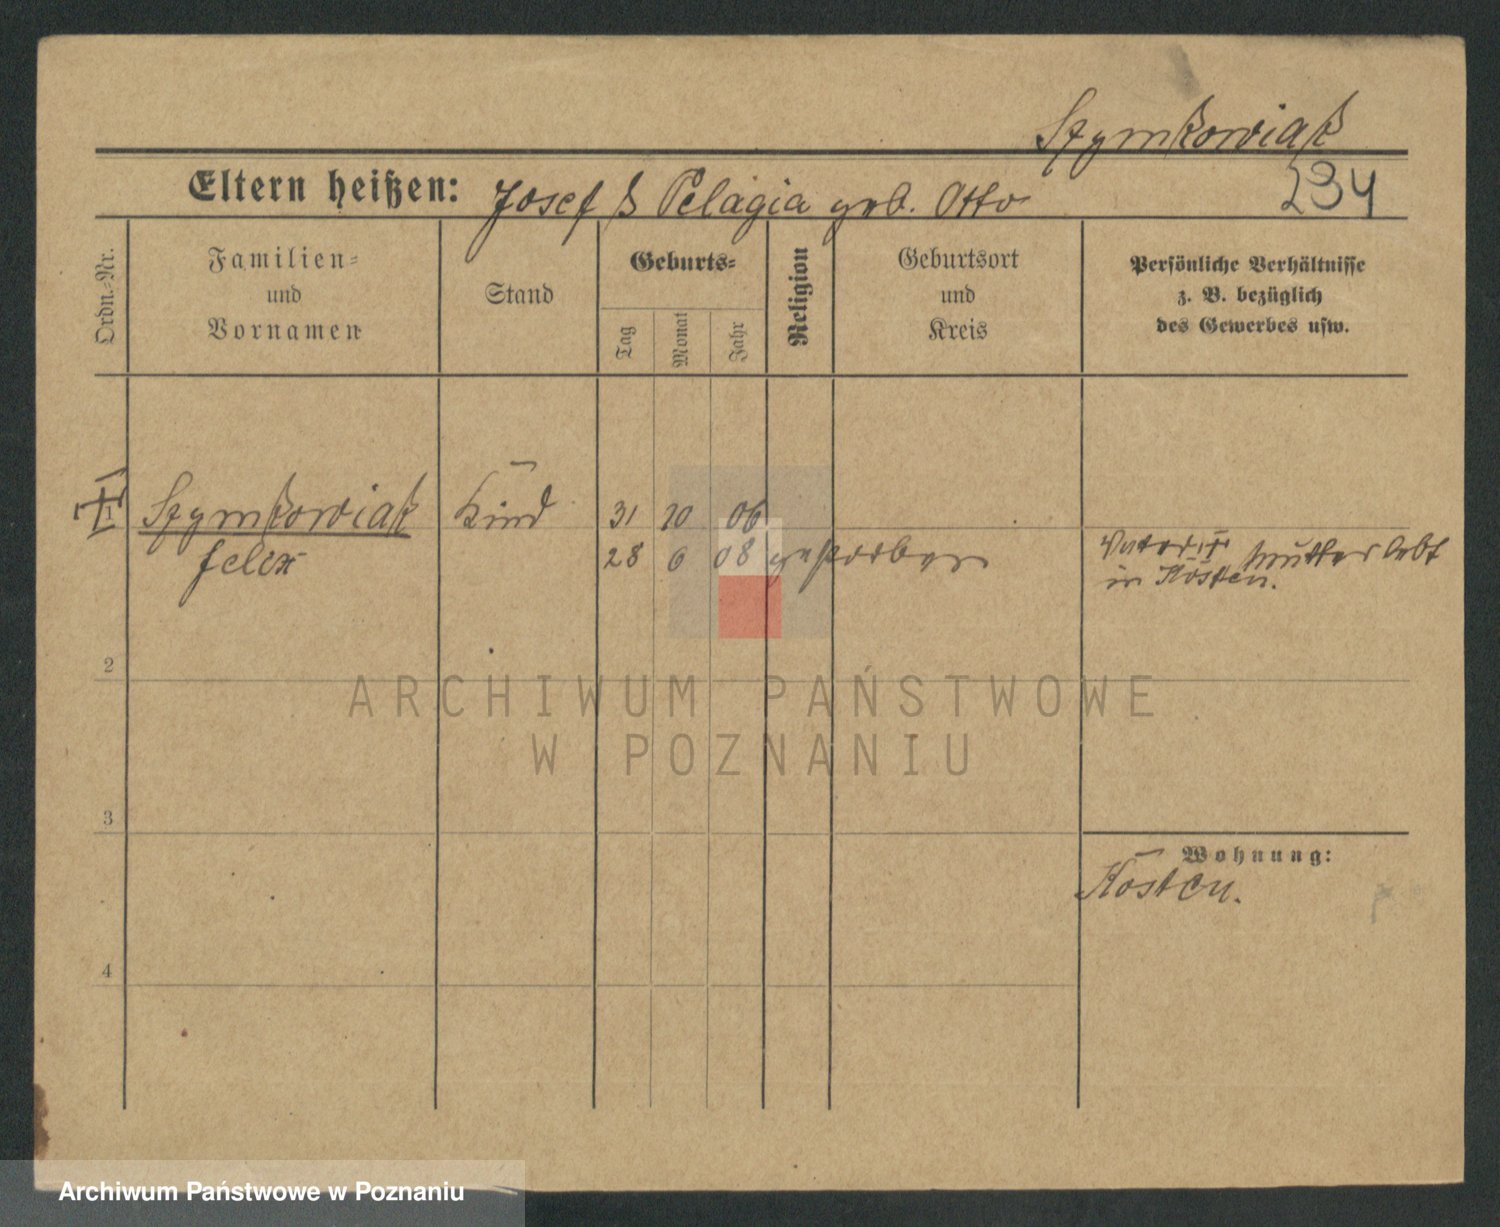 Szymkowiak
Eltern heißen: Josef & Pelagia geb. Otto 234
Ordn.-Nr.
Familien-
und
Vornamen
Stand
Geburts-
Tag
Monat
Jahr
Religion
Geburtsort
und
Kreis
Persönliche Verhältnisse
z. B. bezüglich
des Gewerbes usw.
1 Szymkowiak Kind 31 10 06
Felix 28 6 08 gestorben
Vater † Mutter lebt
in Kosten.
2
3
4
Wohnung:
Kosten.
ARCHIWUM PAŃSTWOWE
W POZNANIU
Archiwum Państwowe w Poznaniu